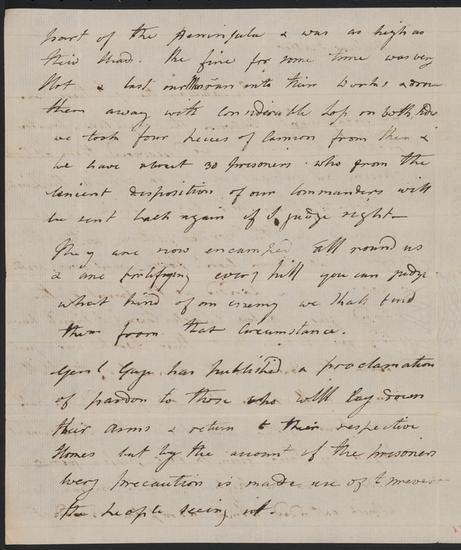 part of the Peninsula & was as high as
their head. The fire for some time was very
Hot & last our Men ran into their works & drove
them away with considerable loss on both side
we took four pieces of Cannon from them &
we have about 30 prisoners who from the
lenient disposition of our commanders will
be sent back again if I judge right -
They are now encamped all round us
& are fortifying every hill you can judge
what kind of an enemy we shall find
them from that Circumstance.
Genl. Gage has published a proclamation
of pardon to those who will Lay down
their arms & return to their respective
Homes but by the account of the prisoners
every precaution is made use of to prevent
the people seeing it.